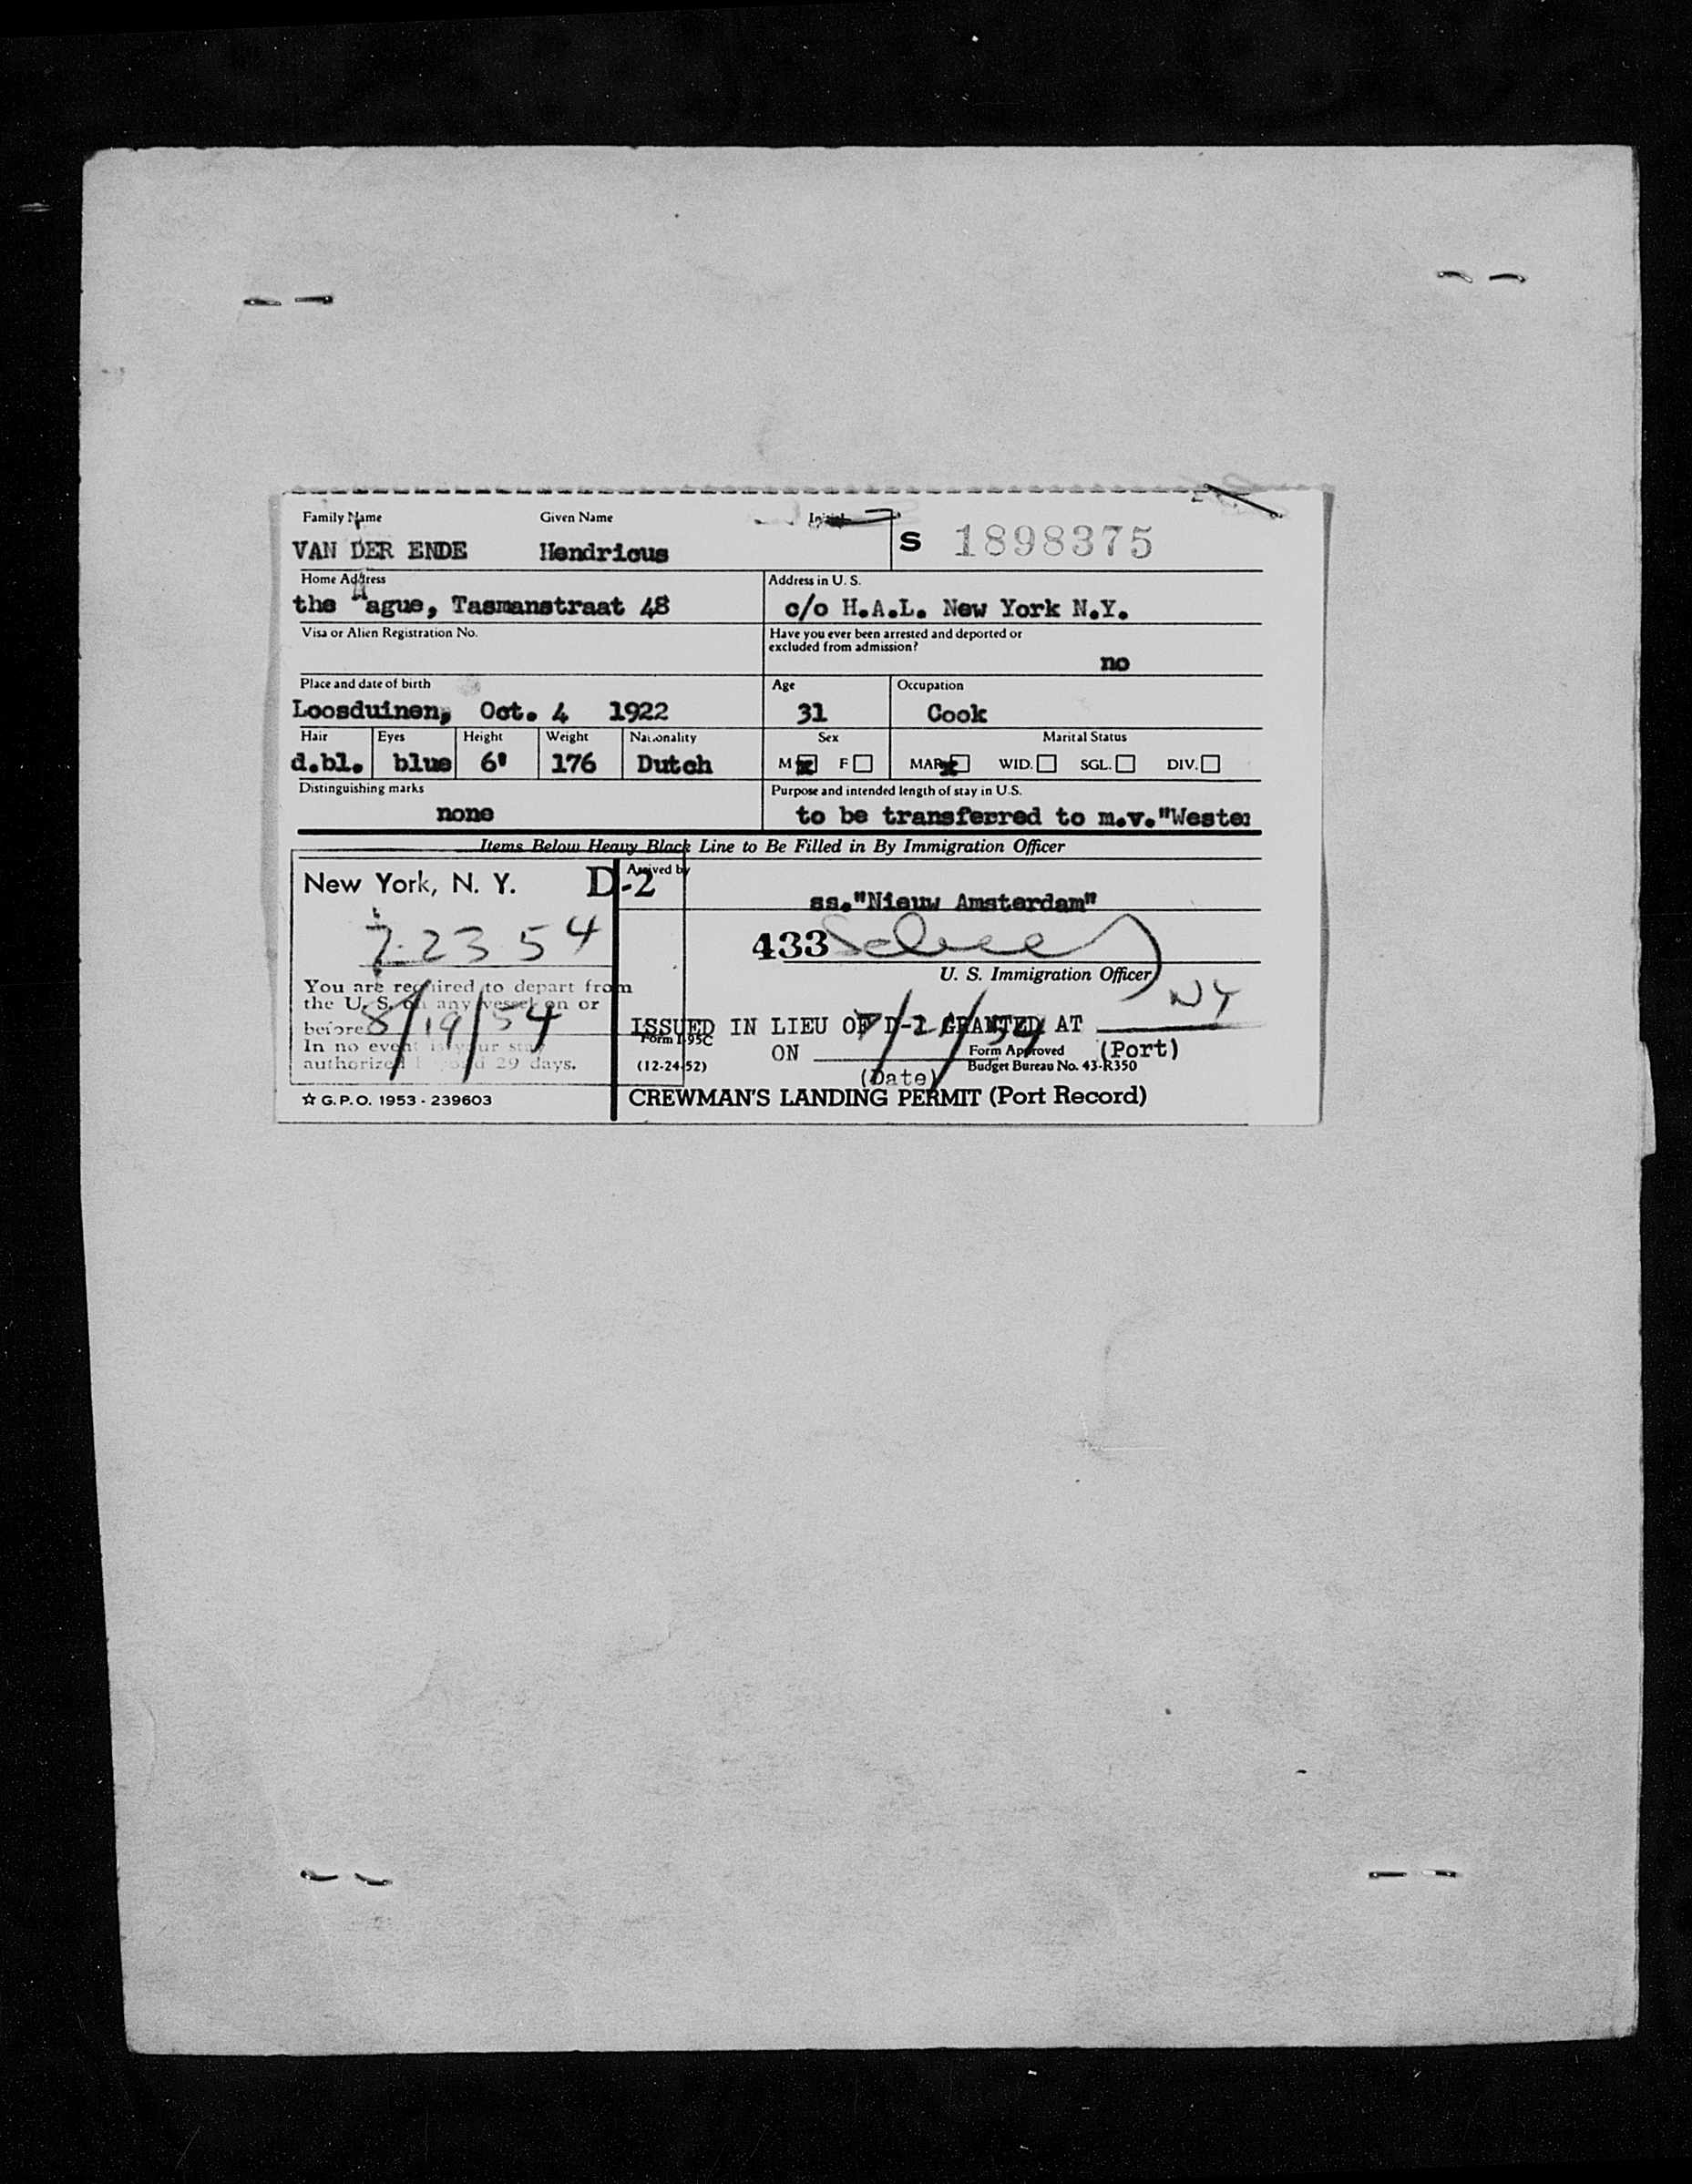 Family Name Given Name Initial
VAN DER ENDE Hendricus S 1898375
Home Address Address in U. S.
the Hague, Tasmanstraat 48 c/o H.A.L. New York N.Y.
Visa or Alien Registration No. Have you ever been arrested and deported or
excluded from admission?
no
Place and date of birth Age Occupation
Loosduinen, Oct. 4 1922 31 Cook
Hair Eyes Height Weight Nationality Sex Marital Status
d.bl. blue 6' 176 Dutch M F MAR. WID. SGL. DIV.
Distinguishing marks Purpose and intended length of stay in U.S.
none to be transferred to m.v."Wester
Items Below Heavy Black Line to Be Filled in By Immigration Officer
New York, N. Y. D-2 Arrived by
ss."Nieuw Amsterdam"
7-23 54 433
U. S. Immigration Officer
You are required to depart from
the U. S. on any vessel on or NY
before 8/19/54 ISSUED IN LIEU OF D-1 GRANTED AT
Form I-95C
In no event is your stay ON Form Approved (Port)
authorized beyond 29 days. (12-24-52) (Date) Budget Bureau No. 43-R350
☆ G.P.O. 1953 - 239603 CREWMAN'S LANDING PERMIT (Port Record)